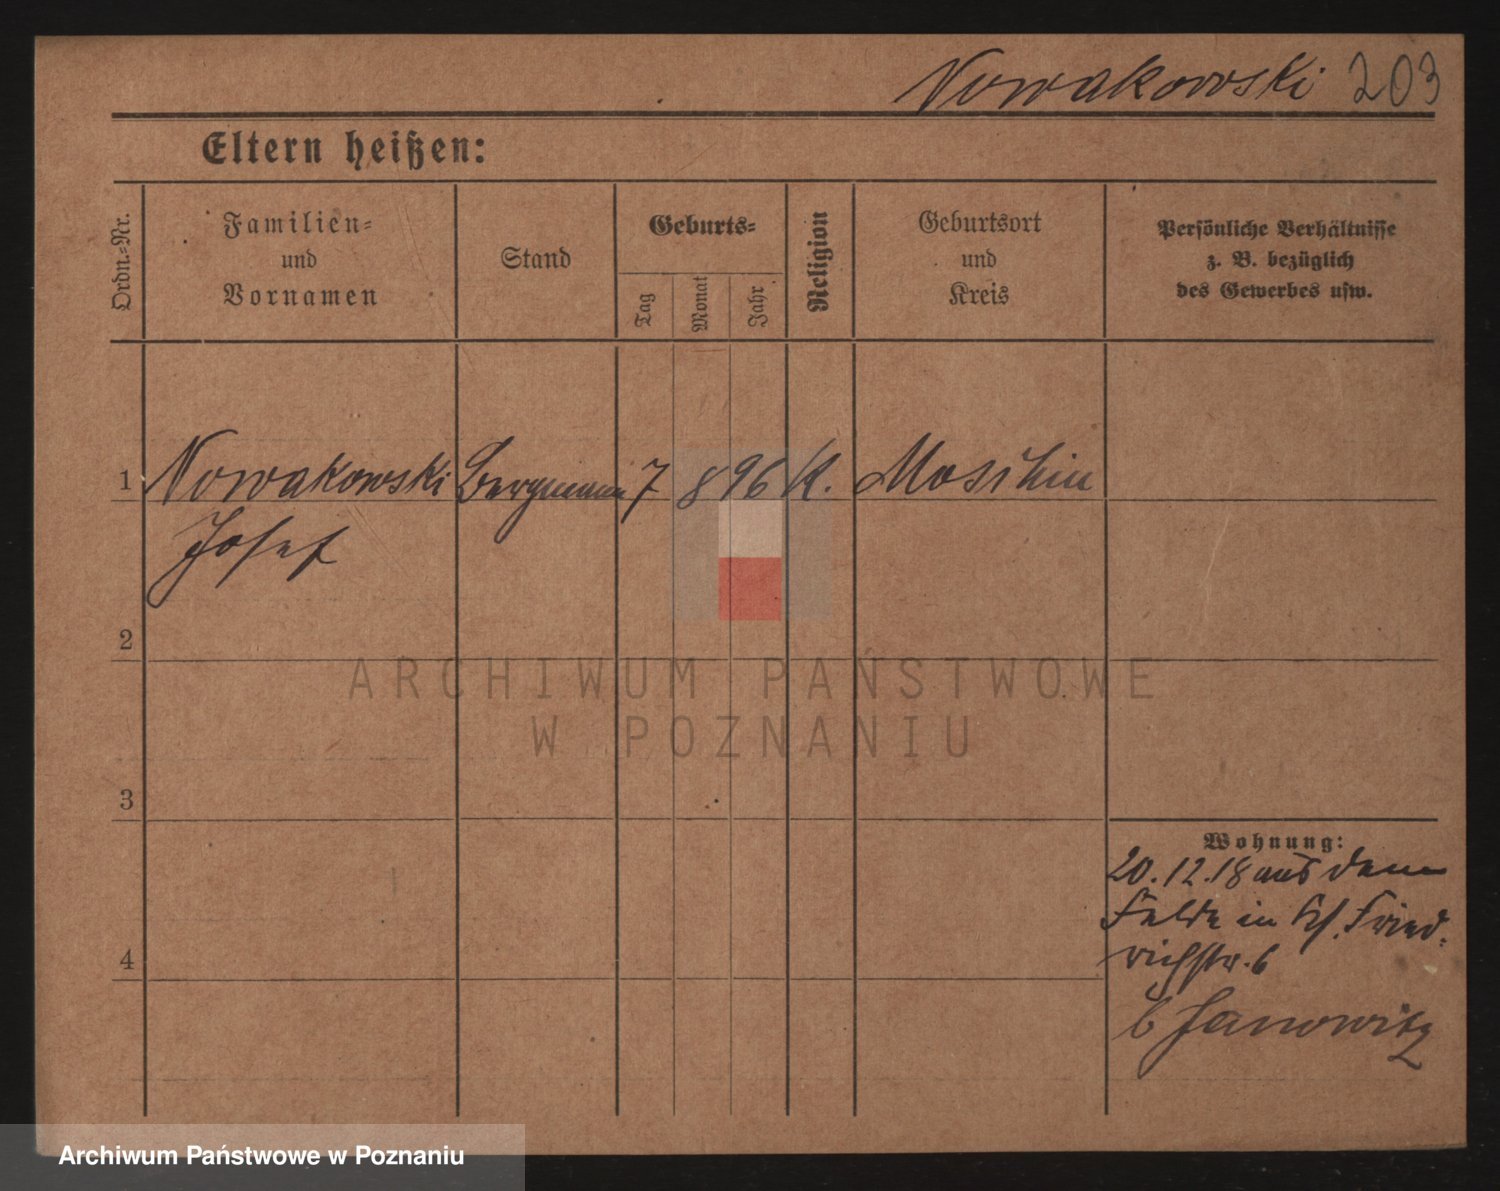 Nowakowski 203
Eltern heißen:
Ordn.-Nr.
Familien-
und
Vornamen
Stand
Geburts-
Tag
Monat
Jahr
Religion
Geburtsort
und
Kreis
Persönliche Verhältnisse
z. B. bezüglich
des Gewerbes usw.
1 Nowakowski Bergmann 7 8 96 K. Moschin
Josef
2
3
4
Wohnung:
20.12.18 aus dem
Felde in Fried-
richstr. 6
b Janowitz
ARCHIWUM PAŃSTWOWE
W POZNANIU
Archiwum Państwowe w Poznaniu